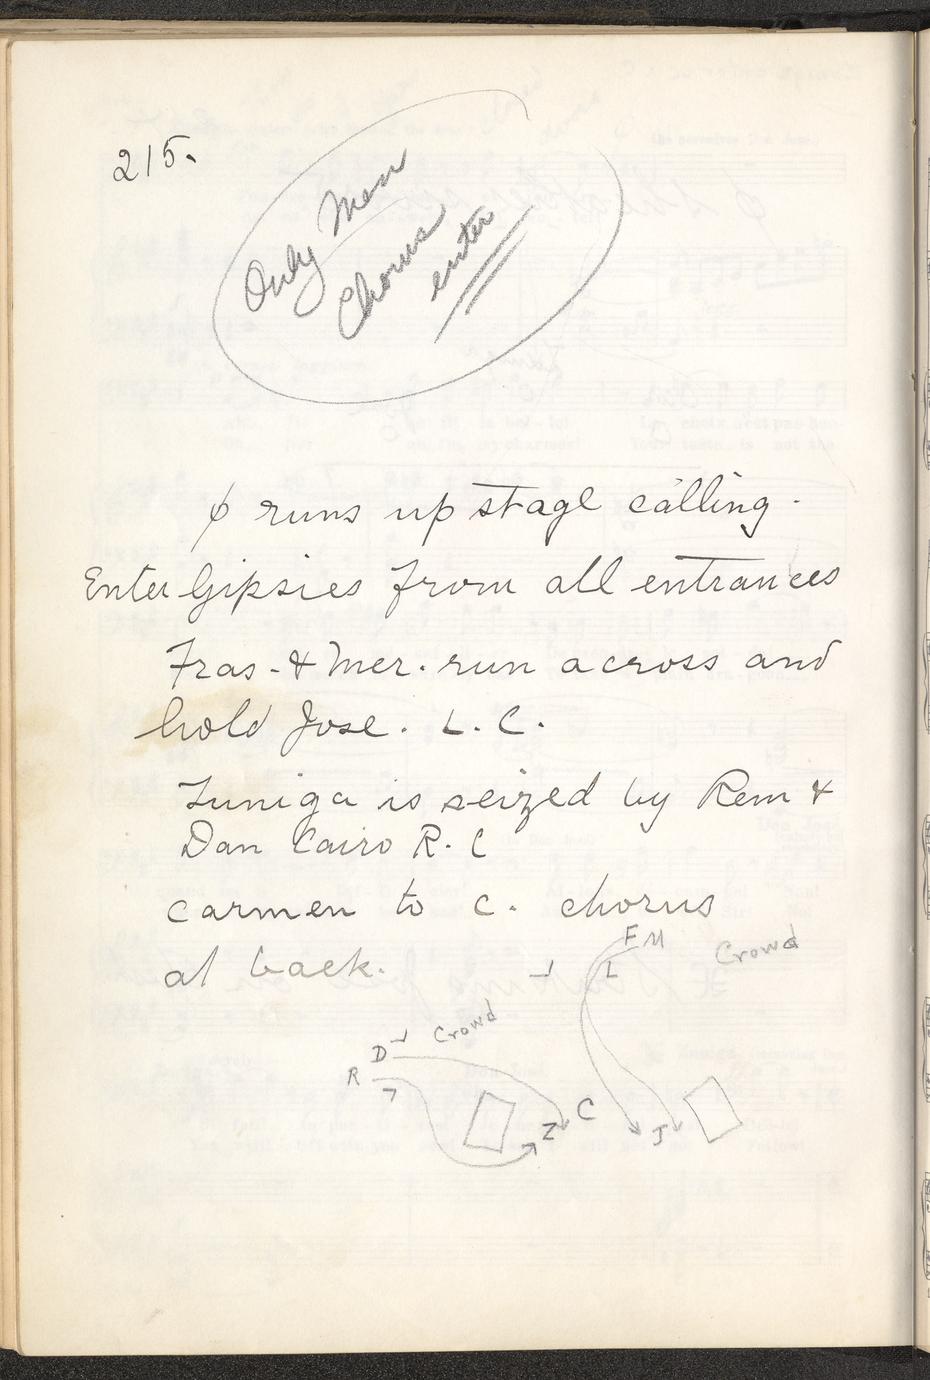 215.
Only Men
Chorus
enter
ϕ runs up stage calling.
Enter Gipsies from all entrances
Fras. & Mer. run across and
hold Jose. L. C.
Zuniga is seized by Rem &
Dan Cairo R. C
Carmen to C. chorus
at back.
F M
Crowd
Crowd
D
R
C
Z
J